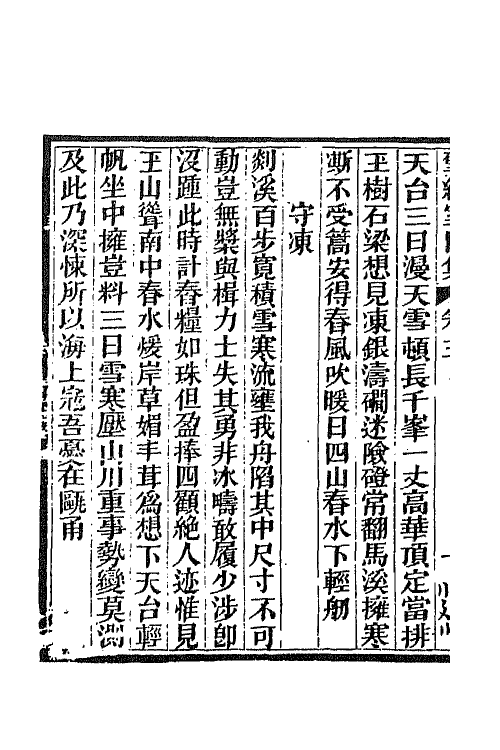 天台三日漫天雪頓長千峯一丈高華頂定當排
玉樹石梁想見凍銀濤磵迷險磴常翻馬溪擁寒
澌不受篙安得春風吹暖日四山春水下輕舠
守凍
剡溪百步寬積雪寒流壅我舟陷其中尺寸不可
動豈無槳與楫力士失其勇非冰疇敢履少涉卽
沒踵此時計舂糧如珠但盈捧四顧絶人迹惟見
玉山聳南中春水煖岸草媚丰茸爲想下天台輕
帆坐中擁豈料三日雪寒壓山川重事勢變莫測
及此乃深悚所以海上冦吾憂在甌甬